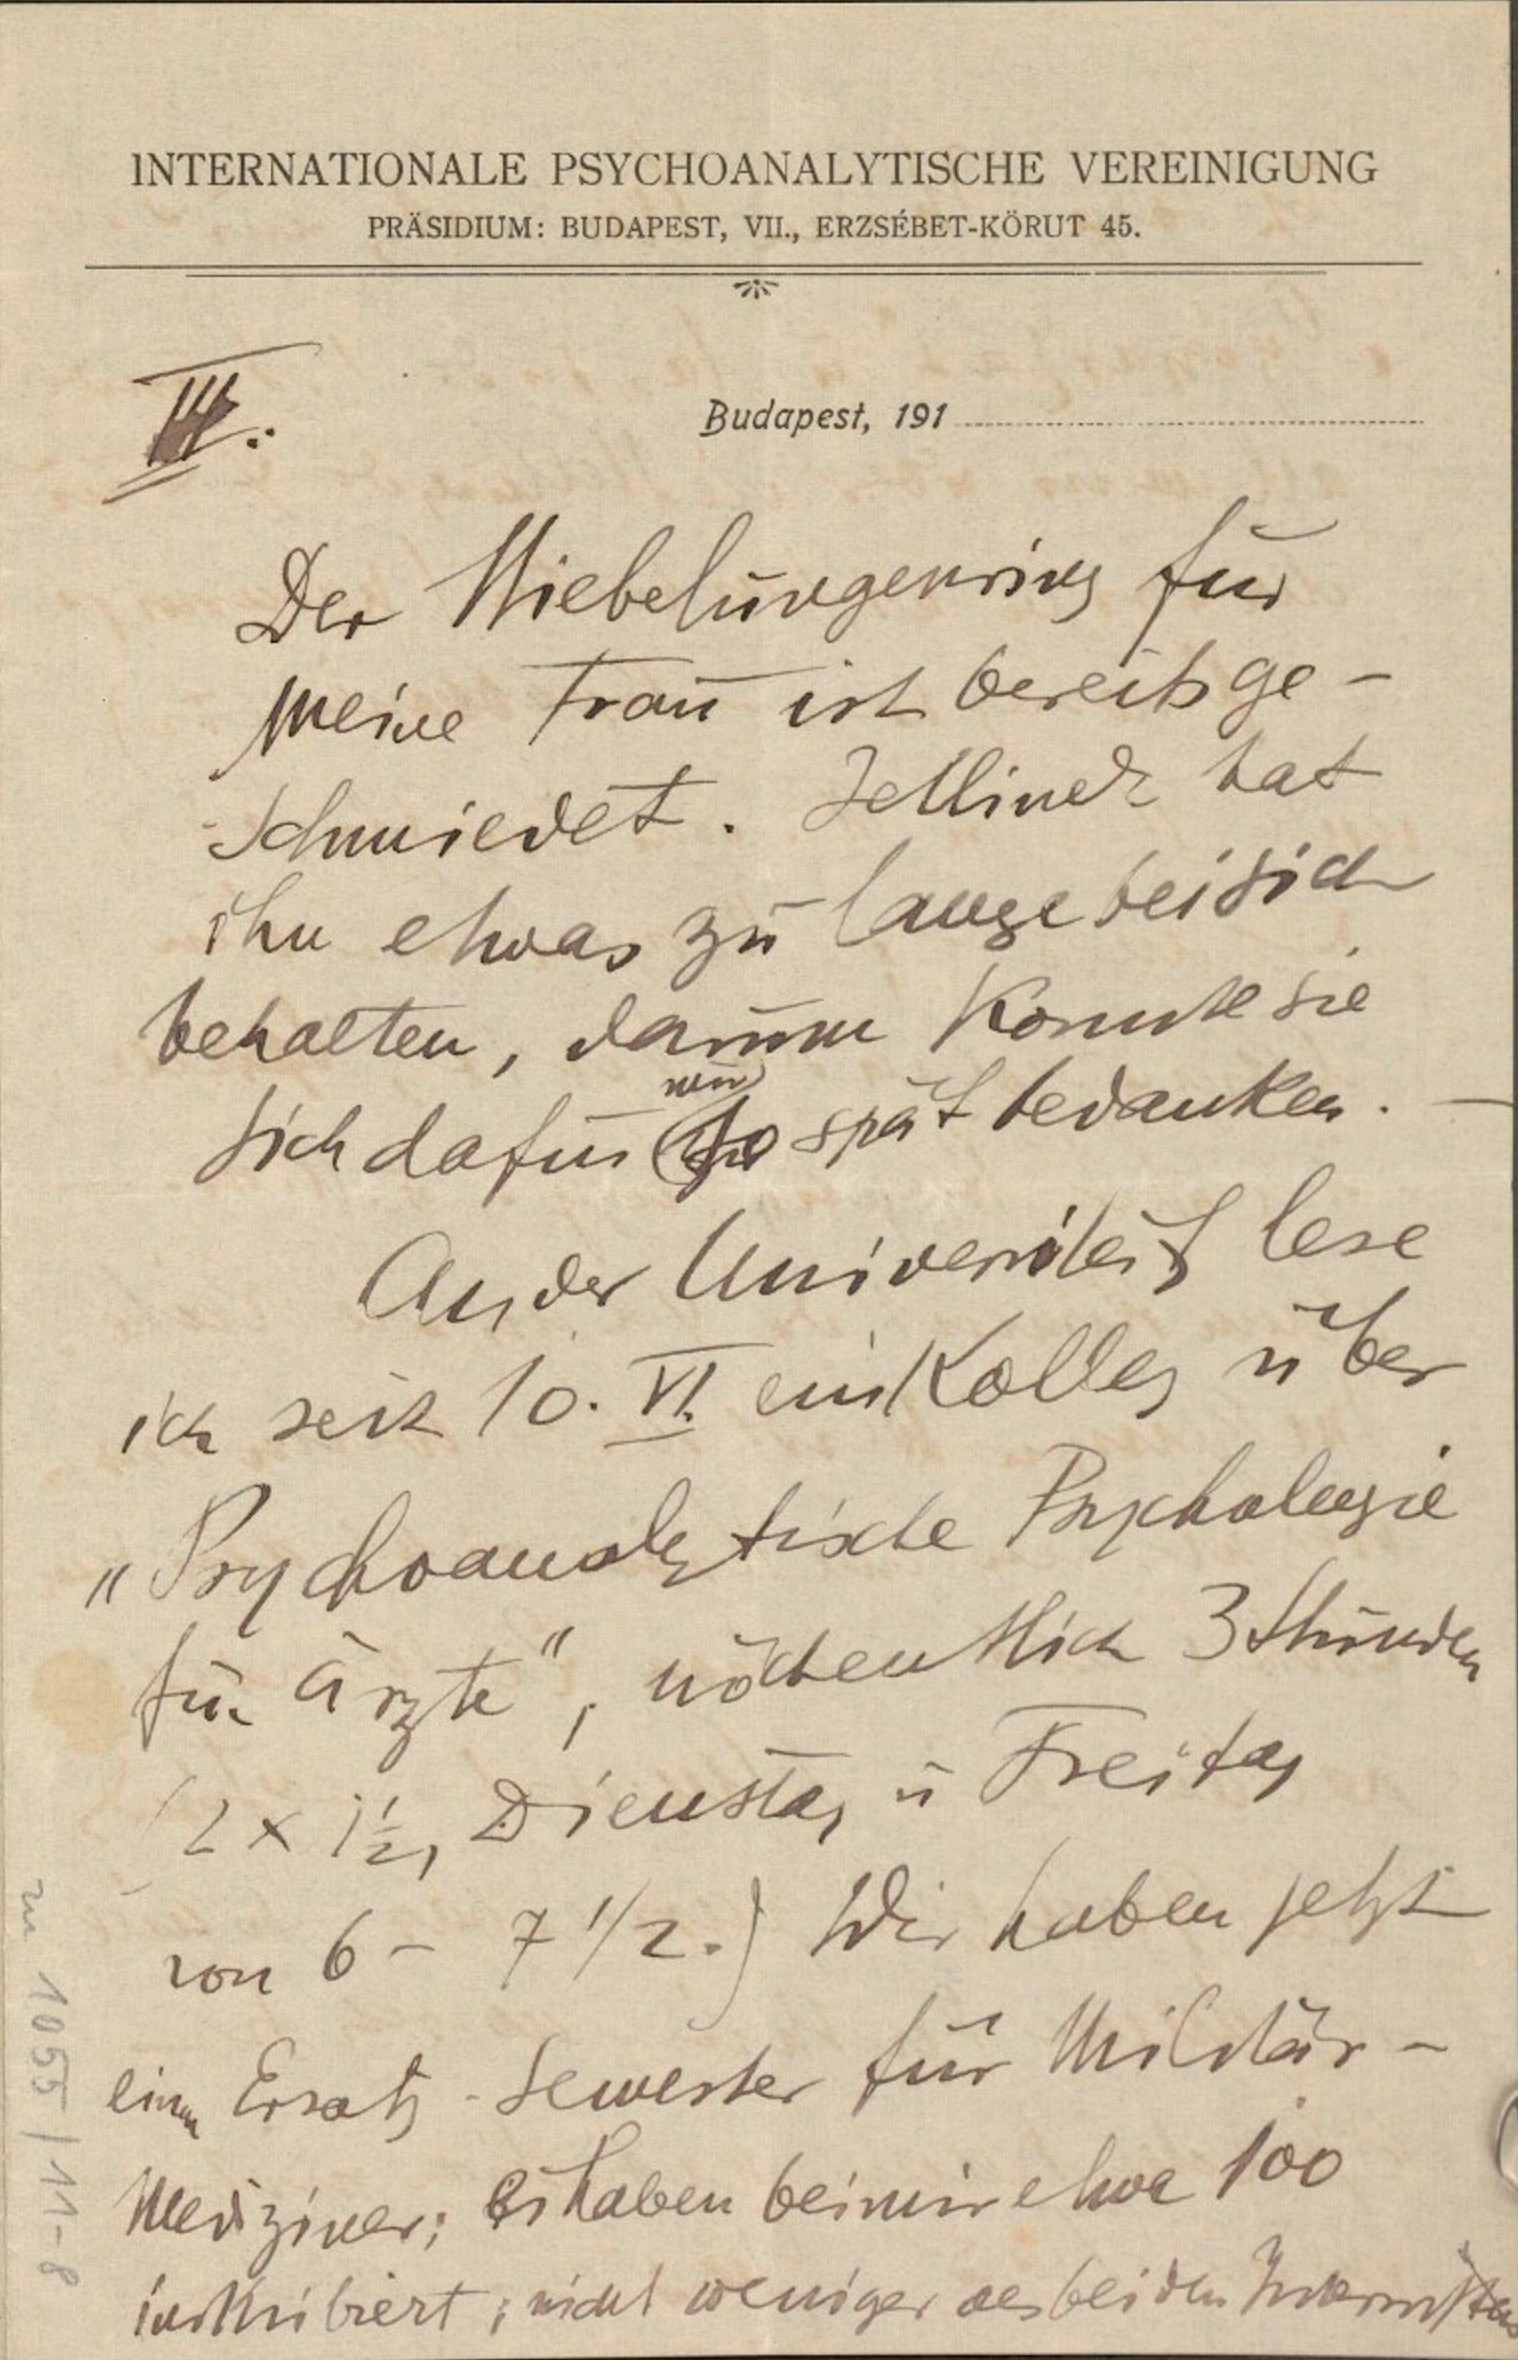 INTERNATIONALE PSYCHOANALYTISCHE VEREINIGUNG
PRÄSIDIUM: BUDAPEST, VII., ERZSÉBET-KÖRUT 45.
III.
Budapest, 191
Der Niebelungenring für
meine Frau ist bereits ge-
schmiedet. Jellinek hat
ihn etwas zu lange bei sich
behalten, darum konnte sie
nur
sich dafür so spät bedanken. —
An der Universität lese
ich seit 10. VI. ein Kolleg über
„Psychoanalytische Psychologie
für Ärzte", wöchentlich 3 Stunden
(2 x 1½, Dienstag u Freitag
von 6 - 7 1/2.) Wir haben jetzt
einen Ersatz-Semester für Militär-
Mediziner; es haben bei mir etwa 100
inskribiert; nicht weniger als bei den Internisten
zu 1055/11-8